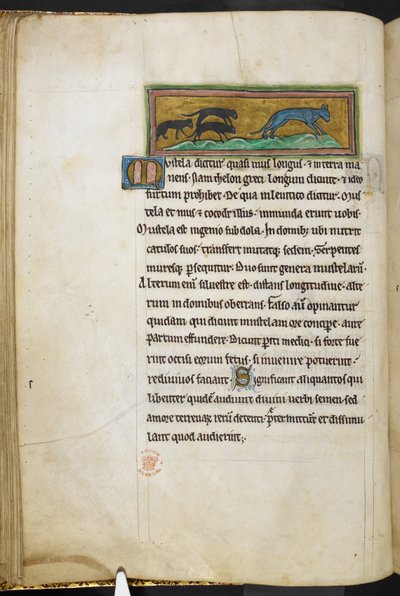 Mustela dicitur quasi mus longus · & in terra ma
nens · Nam thelon greci longum dicunt · & ideo
furtum prohibet · De qua in leuitico dicitur · Mus
tela et mus & cocodrillus · inmunda erunt uobis ·
Mustela est ingenio subdola · In domib; ubi nutrit
catulos suos · transfert mutatq; sedem · Serpentes
muresq; persequitur · Duo sunt genera mustelarum ·
Alterum enim siluestre est · distans longitudine · alte
rum in domibus oberrans · Falso autem opinantur
quidam qui dicunt mustelam ore concipe · aure
partum effundere · Dicunt periti medici · si forte fue
rint occisi eorum fetus · si inuenire potuerint ·
rediuiuos faciant · Significant aliquantos qui
libenter quidem audiunt diuini uerbi semen · sed
amore terrenarum rerum detenti · pretermittunt et dissimu
lant quod audierint ;